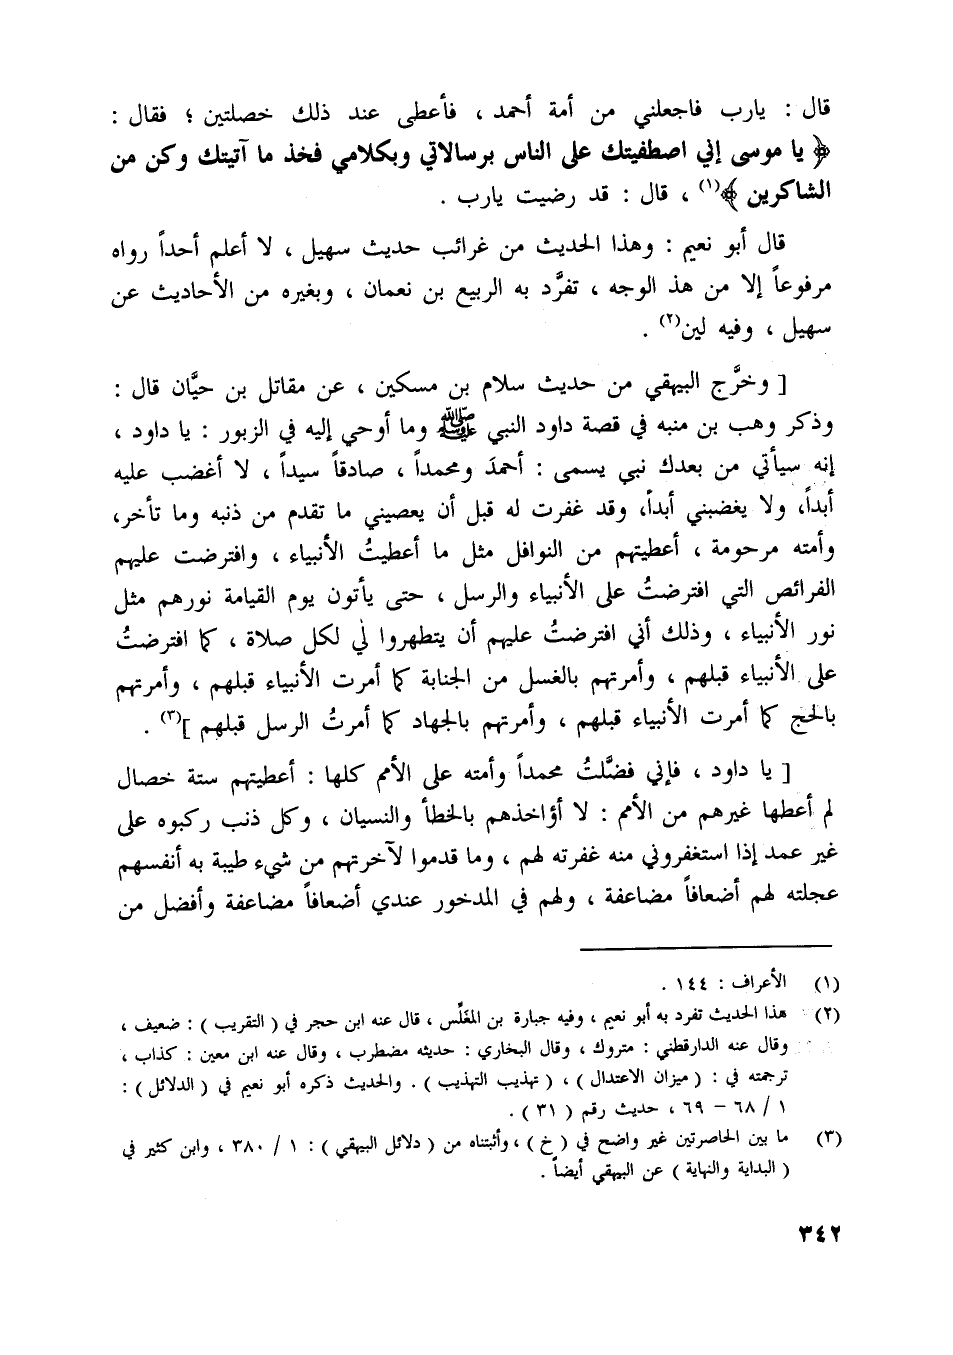 قال : يارب فاجعلني من أمة أحمد ، فأعطى عند ذلك خصلتين ؛ فقال :
﴿ يا موسى إني اصطفيتك على الناس برسالاتي وبكلامي فخذ ما آتيتك وكن من
الشاكرين ﴾(١) ، قال : قد رضيت يارب .
قال أبو نعيم : وهذا الحديث من غرائب حديث سهيل ، لا أعلم أحداً رواه
مرفوعاً إلا من هذ الوجه ، تفرَّد به الربيع بن نعمان ، وبغيره من الأحاديث عن
سهيل ، وفيه لين(٢) .
[ وخرَّج البيهقي من حديث سلام بن مسكين ، عن مقاتل بن حيَّان قال :
وذكر وهب بن منبه في قصة داود النبي ﷺ وما أوحي إليه في الزبور : يا داود ،
إنه سيأتي من بعدك نبي يسمى : أحمدَ ومحمداً ، صادقاً سيداً ، لا أغضب عليه
أبداً، ولا يغضبني أبداً، وقد غفرت له قبل أن يعصيني ما تقدم من ذنبه وما تأخر،
وأمته مرحومة ، أعطيتهم من النوافل مثل ما أعطيتُ الأنبياء ، وافترضت عليهم
الفرائص التي افترضتُ على الأنبياء والرسل ، حتى يأتون يوم القيامة نورهم مثل
نور الأنبياء ، وذلك أني افترضتُ عليهم أن يتطهروا لي لكل صلاة ، كما افترضتُ
على الأنبياء قبلهم ، وأمرتهم بالغسل من الجنابة كما أمرت الأنبياء قبلهم ، وأمرتهم
بالحج كما أمرت الأنبياء قبلهم ، وأمرتهم بالجهاد كما أمرتُ الرسل قبلهم ](٣) .
[ يا داود ، فإني فضَّلتُ محمداً وأمته على الأمم كلها : أعطيتهم ستة خصال
لم أعطها غيرهم من الأمم : لا أؤاخذهم بالخطأ والنسيان ، وكل ذنب ركبوه على
غير عمد إذا استغفروني منه غفرته لهم ، وما قدموا لآخرتهم من شيء طيبة به أنفسهم
عجلته لهم أضعافاً مضاعفة ، ولهم في المدخور عندي أضعافاً مضاعفة وأفضل من
(١) الأعراف : ١٤٤ .
(٢) هذا الحديث تفرد به أبو نعيم ، وفيه جبارة بن المغَلِّس ، قال عنه ابن حجر في ( التقريب ) : ضعيف ،
وقال عنه الدارقطني : متروك ، وقال البخاري : حديثه مضطرب ، وقال عنه ابن معين : كذاب ،
ترجمته في : ( ميزان الاعتدال ) ، ( تهذيب التهذيب ) . والحديث ذكره أبو نعيم في ( الدلائل ) :
١ / ٦٨ – ٦٩ ، حديث رقم ( ٣١ ) .
(٣) ما بين الحاصرتين غير واضح في ( خ ) ، وأثبتناه من ( دلائل البيهقي ) : ١ / ٣٨٠ ، وابن كثير في
( البداية والنهاية ) عن البيهقي أيضاً .
٣٤٢